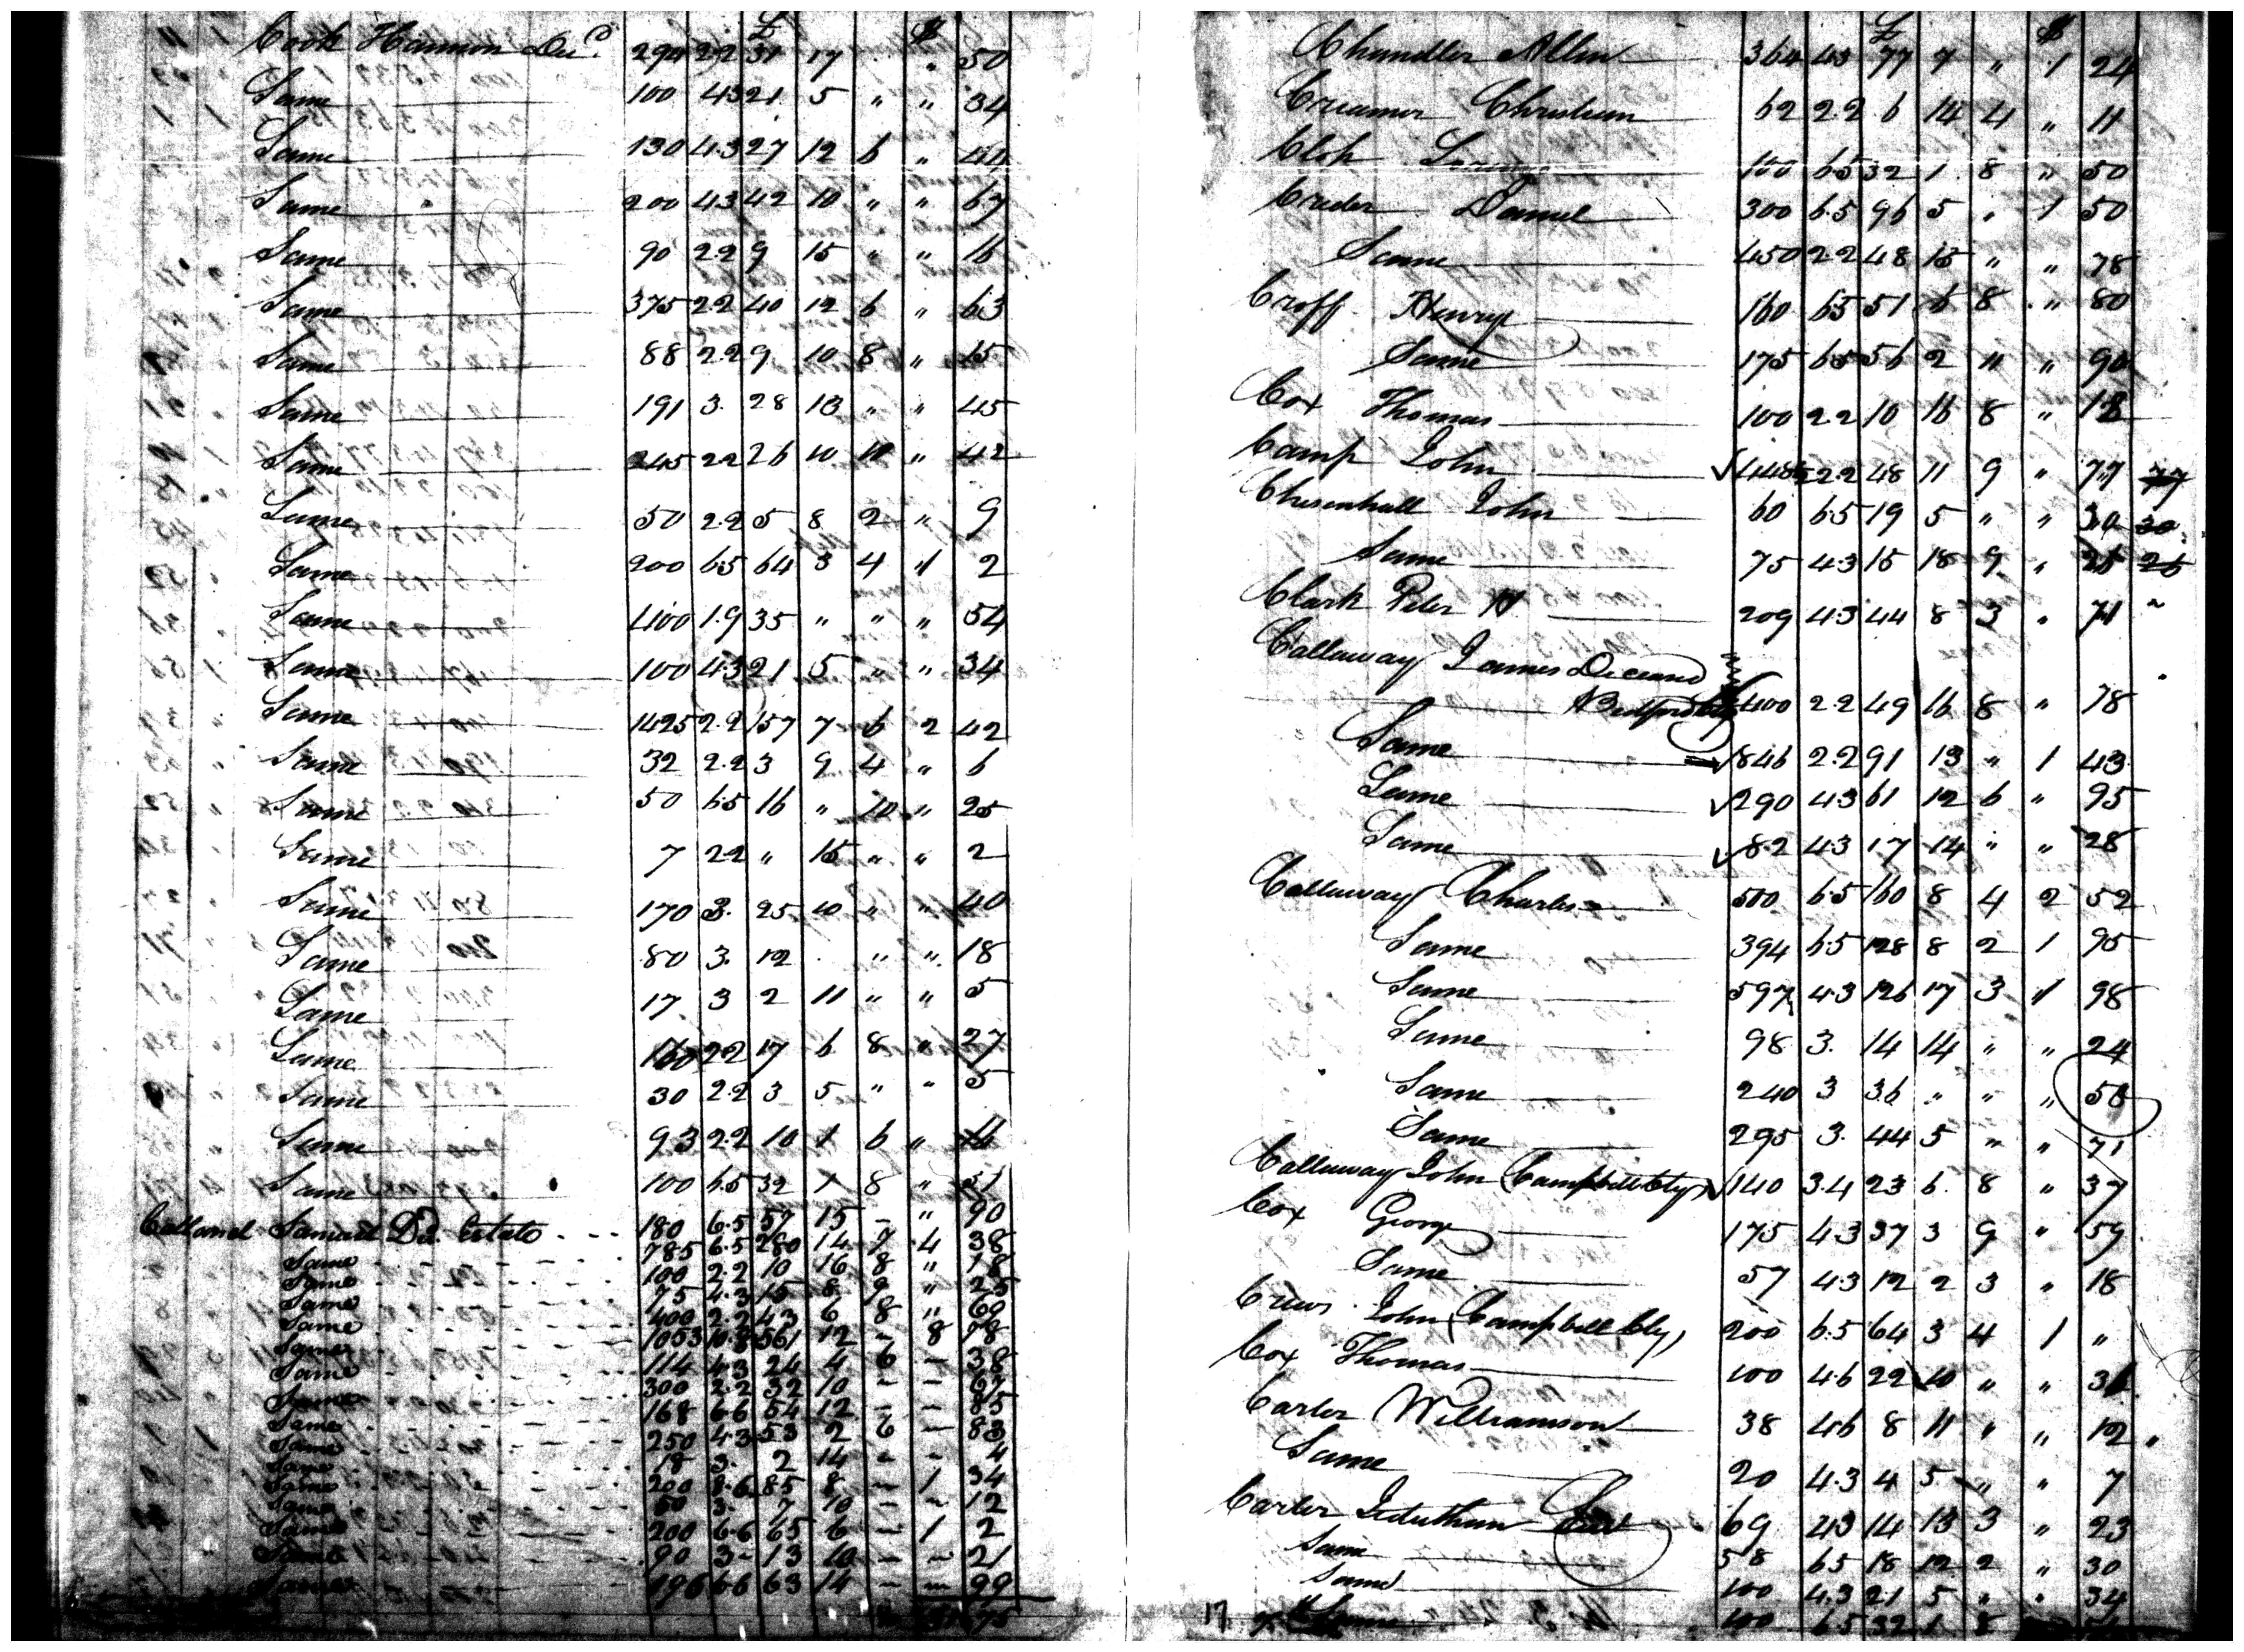 £ $
Cook Harmon Decd. 294 2.2 31 17 " 50
Same 100 4.3 21 5 " " 34
Same 130 4.3 27 12 6 " 44
Same 200 4.3 42 10 " " 67
Same 90 2.2 9 15 " " 16
Same 375 2.2 40 12 6 " 63
Same 88 2.2 9 10 8 " 15
Same 191 3. 28 13 " " 45
Same 245 2.2 26 10 10 " 42
Same 50 2.2 5 8 2 " 9
Same 200 6.5 64 3 4 1 2
Same 400 1.9 35 " " " 54
Same 100 4.3 21 5 " " 34
Same 1425 2.2 157 7 6 2 42
Same 32 2.2 3 9 4 " 6
Same 50 6.5 16 " 10 " 25
Same 7 2.2 " 15 " " 2
Same 170 3. 25 10 " " 40
Same 80 3. 12 " " 18
Same 17 3 2 11 " " 5
Same 160 2.2 17 6 8 " 27
Same 30 2.2 3 5 " " 5
Same 93 2.2 10 1 6 " 16
Same 100 6.5 32 1 8 " 51
Calland Samuel Dd. Estate 180 6.5 57 15 - " 90
785 6.5 280 14 7 4 38
Same 100 2.2 10 16 8 " 18
Same 75 4.3 15 8 9 " 25
Same 400 2.2 43 6 8 " 69
Same 1053 10.8 561 12 - 8 78
Same 114 4.3 24 4 6 - 38
Same 300 2.2 32 10 - - 67
Same 168 6.6 54 12 - - 85
Same 250 4.3 53 2 6 - 83
Same 18 3. 2 14 - - 4
Same 200 8.6 85 8 - 1 34
Same 50 3. 7 10 - - 12
Same 200 6.6 65 6 - 1 2
Same 90 3 - 13 10 - - 21
Same 196 6.6 63 14 - - 99
75
£ $
Chandler Allen 364 4.3 77 7 " 1 24
Creamor Christian 62 2.2 6 14 4 " 11
Cloh 100 6.5 32 1 8 " 50
Creder Daniel 300 6.5 96 5 " 1 50
Same 450 2.2 48 15 " " 78
Croff Henry 160 6.5 51 6 8 " 80
Same 175 6.5 56 2 11 " 90
Cox Thomas 100 2.2 10 16 8 " 18
Camp John 448 2.2 48 11 9 " 77 77
Chisenhall John 60 6.5 19 5 " " 30 30
Same 75 4.3 15 18 9 " 25 25
Clark Peter H 209 4.3 44 8 3 " 71
Callaway James Deceasd
Bedford Cty 400 2.2 49 16 8 " 78
Same 846 2.2 91 13 " 1 43
Same 290 4.3 61 12 6 " 95
Same 82 4.3 17 14 " " 28
Callaway Charles 500 6.5 160 8 4 2 52
Same 394 6.5 128 8 2 1 95
Same 597 4.3 126 17 3 1 98
Same 98 3. 14 14 " " 24
Same 240 3 36 " " " 58
Same 295 3. 44 5 " " 71
Callaway John (Campbell Cty) 140 3.4 23 6 8 " 37
Cox George 175 4.3 37 3 9 " 59
Same 57 4.3 12 2 3 " 18
Crews John (Campbell Cty) 200 6.5 64 3 4 1 "
Cox Thomas 100 4.6 22 10 " " 36
Carter Williamson 38 4.6 8 11 " " 12
Same 20 4.3 4 5 " " 7
Carter Jeduthun 69 4.3 14 13 3 " 23
Same 58 6.5 18 12 2 " 30
Same 100 4.3 21 5 " " 34
17 Same 100 6.5 32 1 8